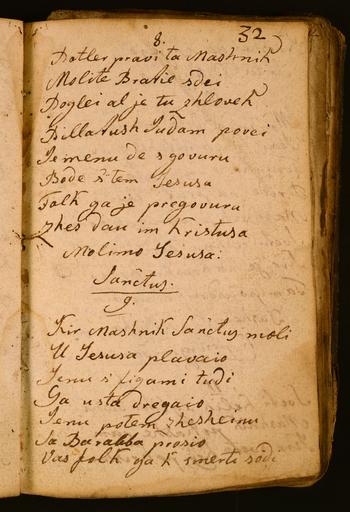 8. 32
Dotler pravi ta Mashnik
Molite Bratie sdei
Poglei al je tu zhlovek
Pillatush Judam povei
Temenu de sgovuru
Bode s' tem Jesusa
Folk ga je pregovuru
zhes dau im Kristusa
Molimo Jesusa:
Sanctus.
9.
Kir Mashnik Sanctus moli
U Jesusa plavaio
Jenu s' figami tudi
Ga usta dregaio
Jenu potem zhesheinu
Sa Barabba prosio
Vas folk ga k smerti sodi